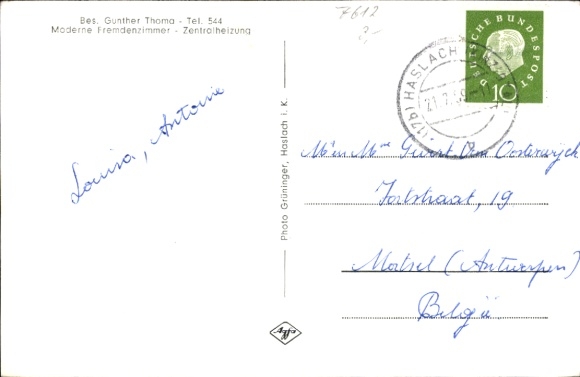 Bes. Gunther Thoma - Tel. 544
Moderne Fremdenzimmer - Zentralheizung
7612
2,-
DEUTSCHE BUNDESPOST
10
(17b) HASLACH
21.7.59
Louisa, Antoine
Photo Grüninger, Haslach i. K.
Mr en Mme Geivert Van Oosterwyck
Fortstraat, 19
Mortsel (Antwerpen)
België
Agfa